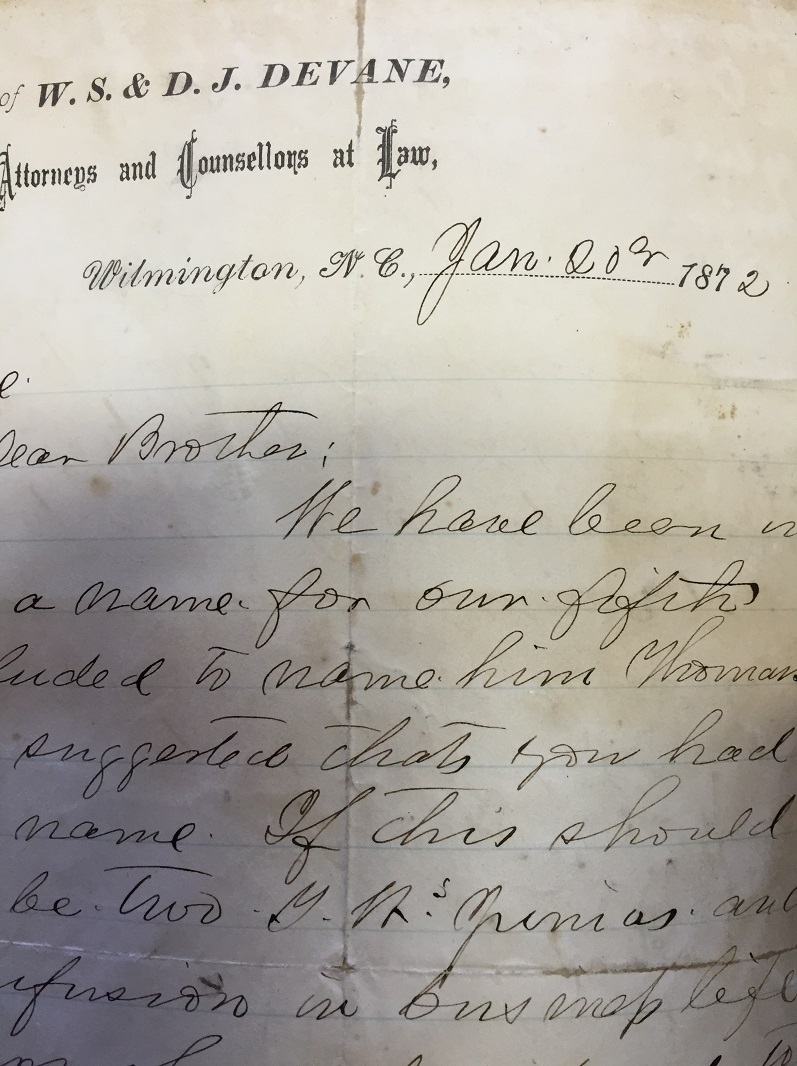 of W. S. & D. J. DEVANE,
Attorneys and Counsellors at Law,
Wilmington, N. C., Jan. 20th 1872
e.
Dear Brother;
We have been
a name for our fifth
luded to name him Thomas
suggested that you had
name. If this should
be two juniors and
nfusion in business life